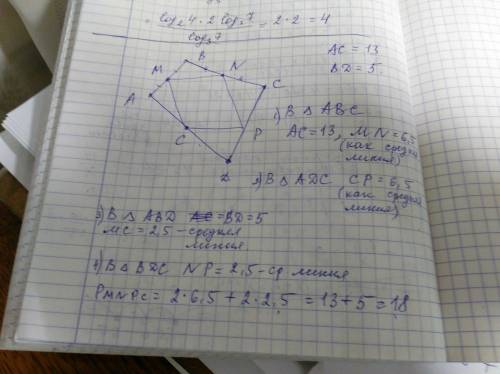 = log₂4 · 2 log₃7 / log₃7 = 2·2 = 4
AC = 13
BD = 5
B
M
N
C
A
C
P
D
1) В Δ ABC
AC = 13, MN = 6,5
(как средняя
линия)
2) В Δ ADC CP = 6,5
(как средняя
линия)
3) В Δ ABD AC = BD = 5
MC = 2,5 - средняя
линия
4) В Δ BDC NP = 2,5 - ср линия
PMNPC = 2·6,5 + 2·2,5 = 13 + 5 = 18